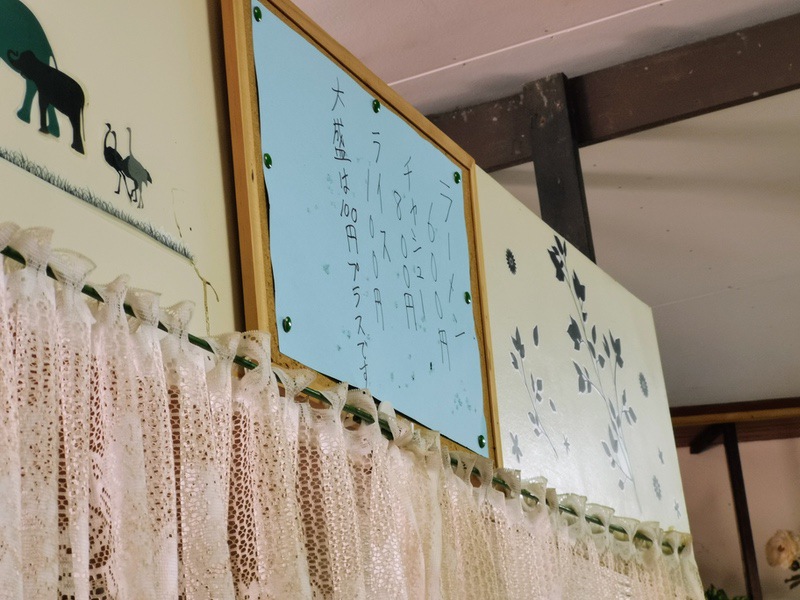 ラーメン
600円
チャシュー
800円
ライス
100円
大盛は100円プラスです